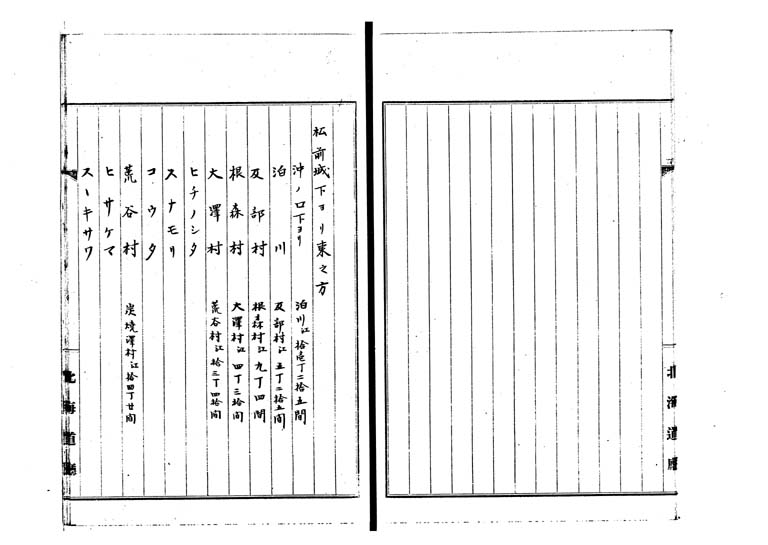 松前城下ヨリ東之方
沖ノ口下ヨリ 泊川江 拾壱丁二拾五間
泊川 及部村江 五丁二拾五間
及部村 根森村江 九丁四間
根森村 大澤村江 四丁三拾間
大澤村 荒谷村江 拾三丁四拾間
ヒチノシタ
スナモリ
コウタ
荒谷村 炭焼澤村江 拾四丁廿間
ヒサケマ
スーキサワ
北海道廳
北海道廳